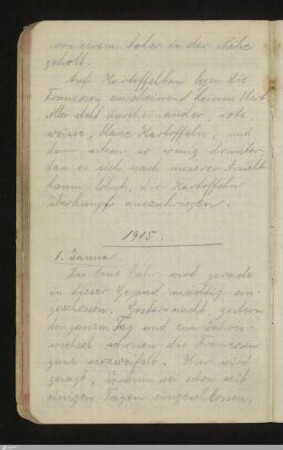 von einem Acker in der Nähe
geholt.
Auf Kartoffelbau legen die
Franzosen anscheinend keinen Wert.
Alles steht durcheinander, rote,
weisse, blaue Kartoffeln, und
dann sitzen so wenig drunter,
dass es sich nach unserer Ansicht
kaum lohnt, die Kartoffeln
überhaupt auszukriegen.
1915.
1. Januar.
Das neue Jahr wird gerade
in dieser Gegend mächtig ein-
geschossen. Gestern Nacht, gestern
den ganzen Tag und zum Jahres-
wechsel schossen die Franzosen
ganz verzweifelt. Hier wird
gesagt, Verdun sei schon seit
einigen Tagen eingeschlossen,